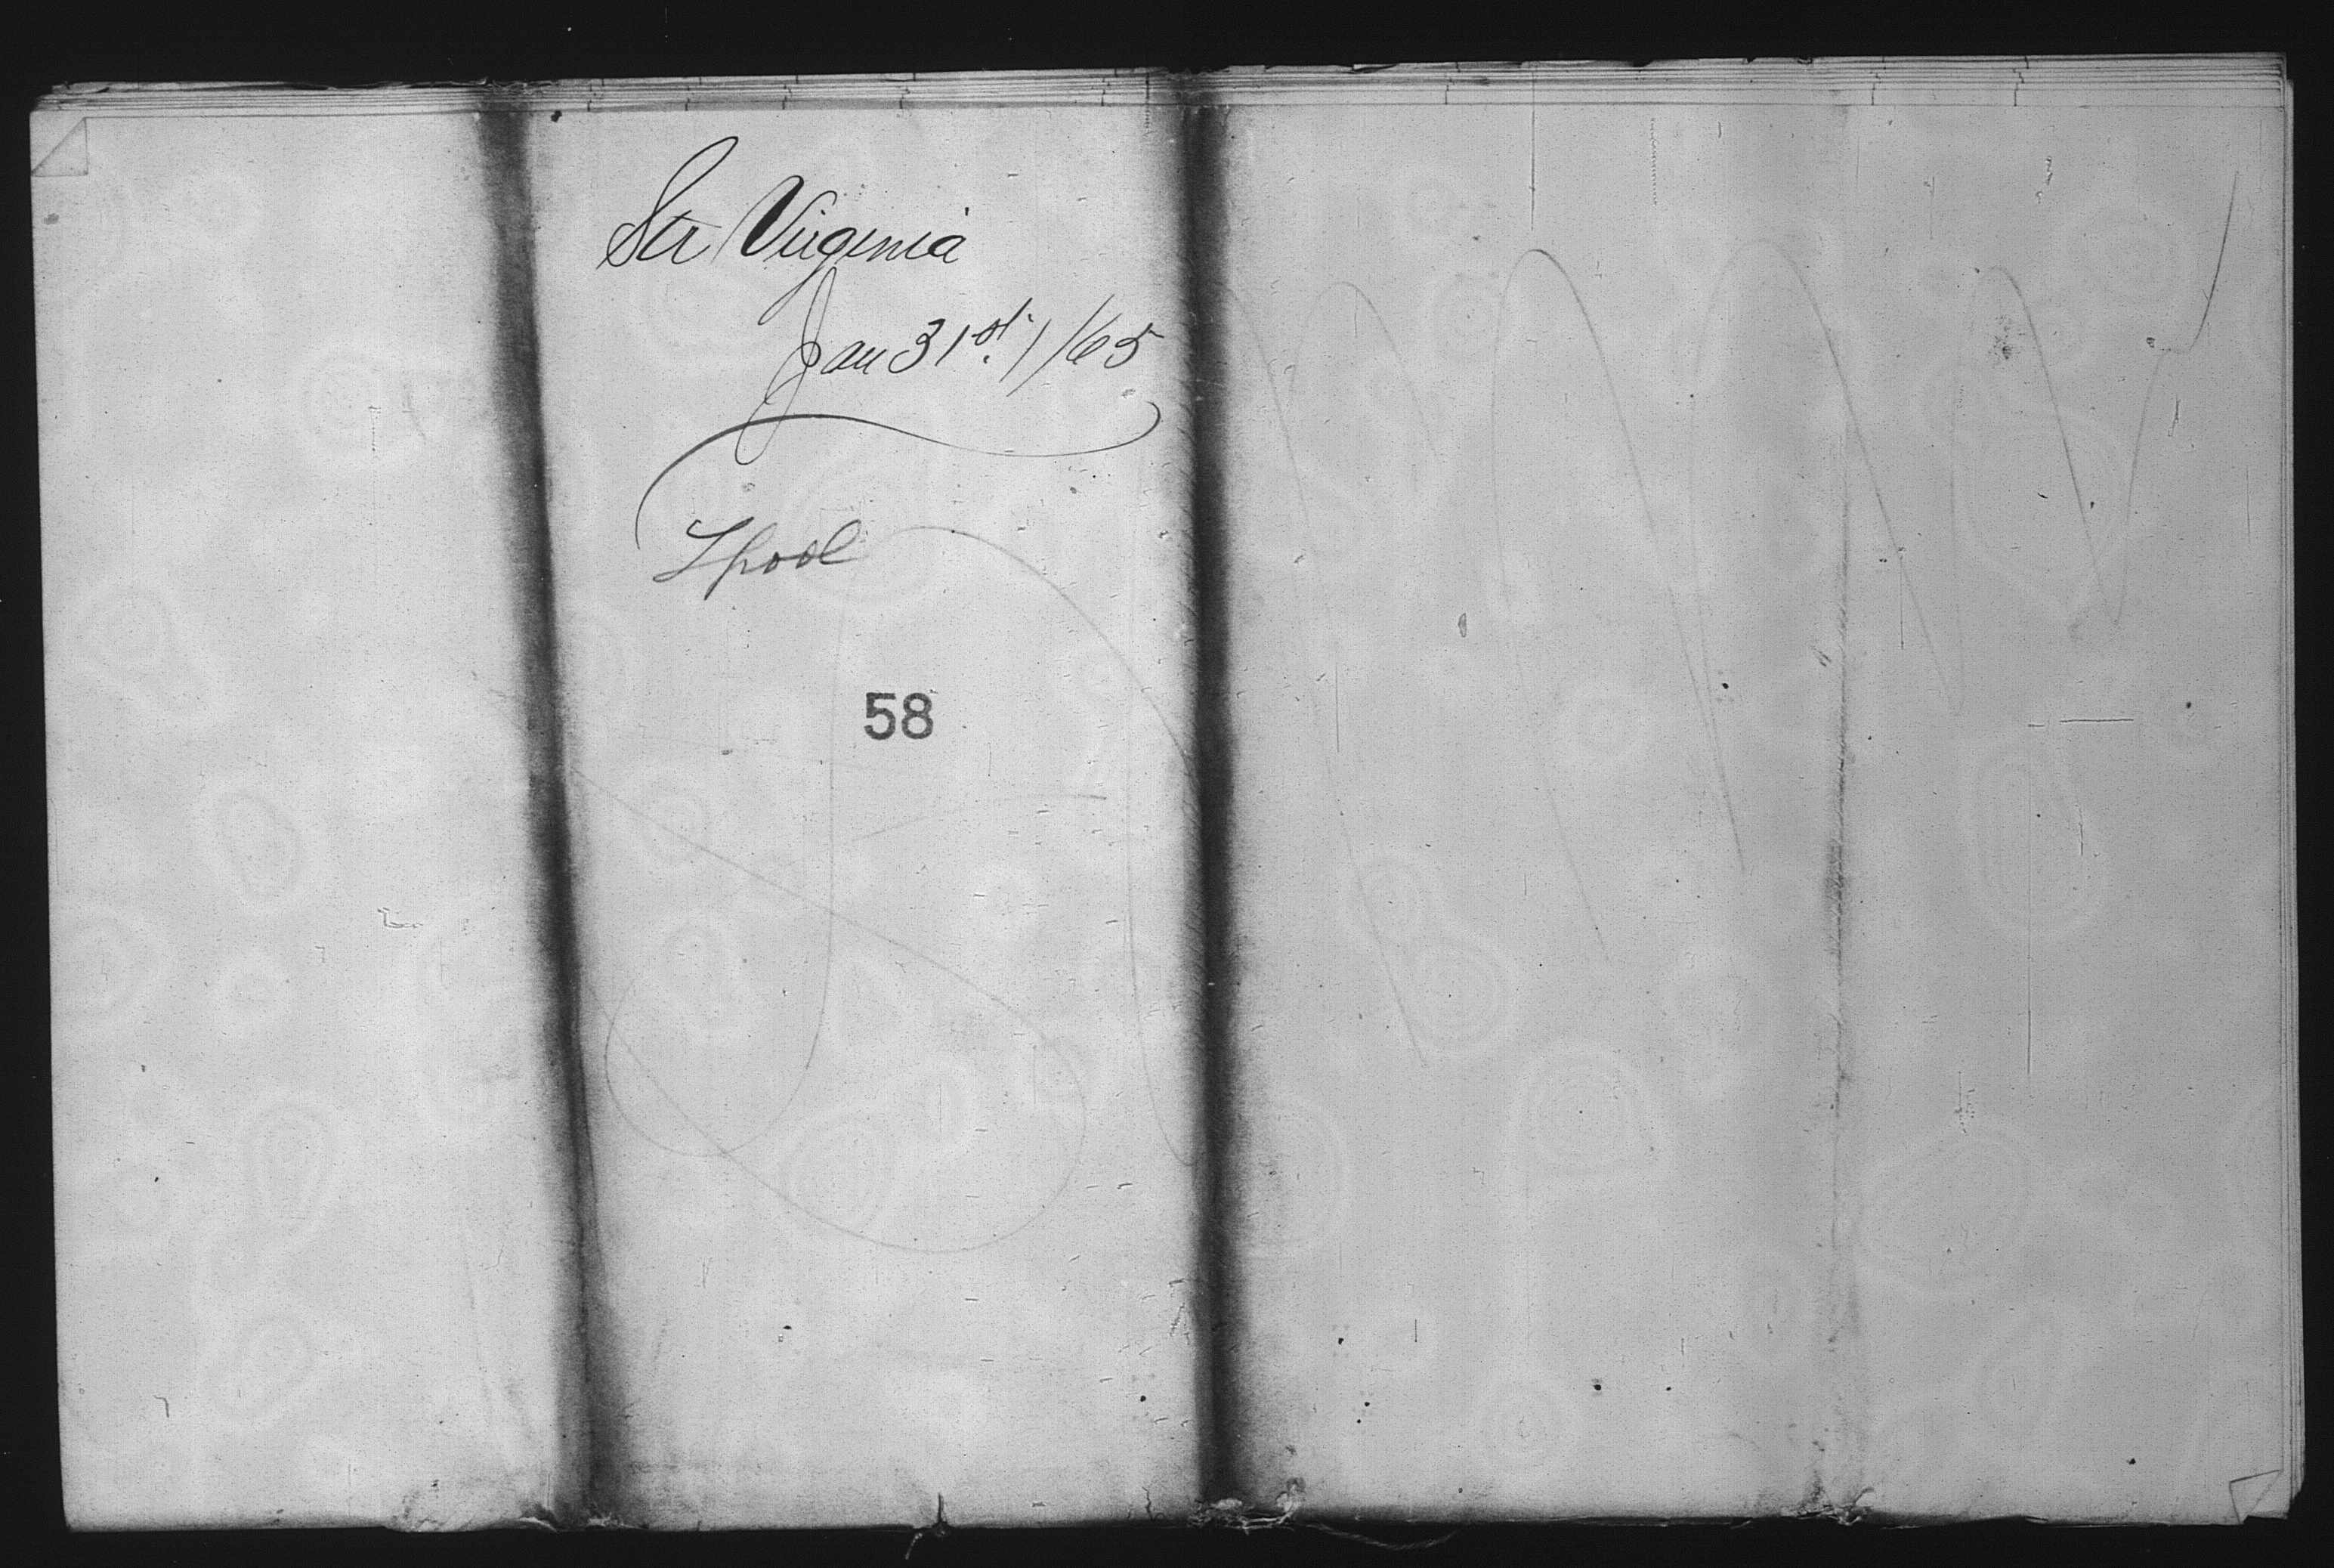 Str Virginia
Jan 31st 1/65
Lpool
58